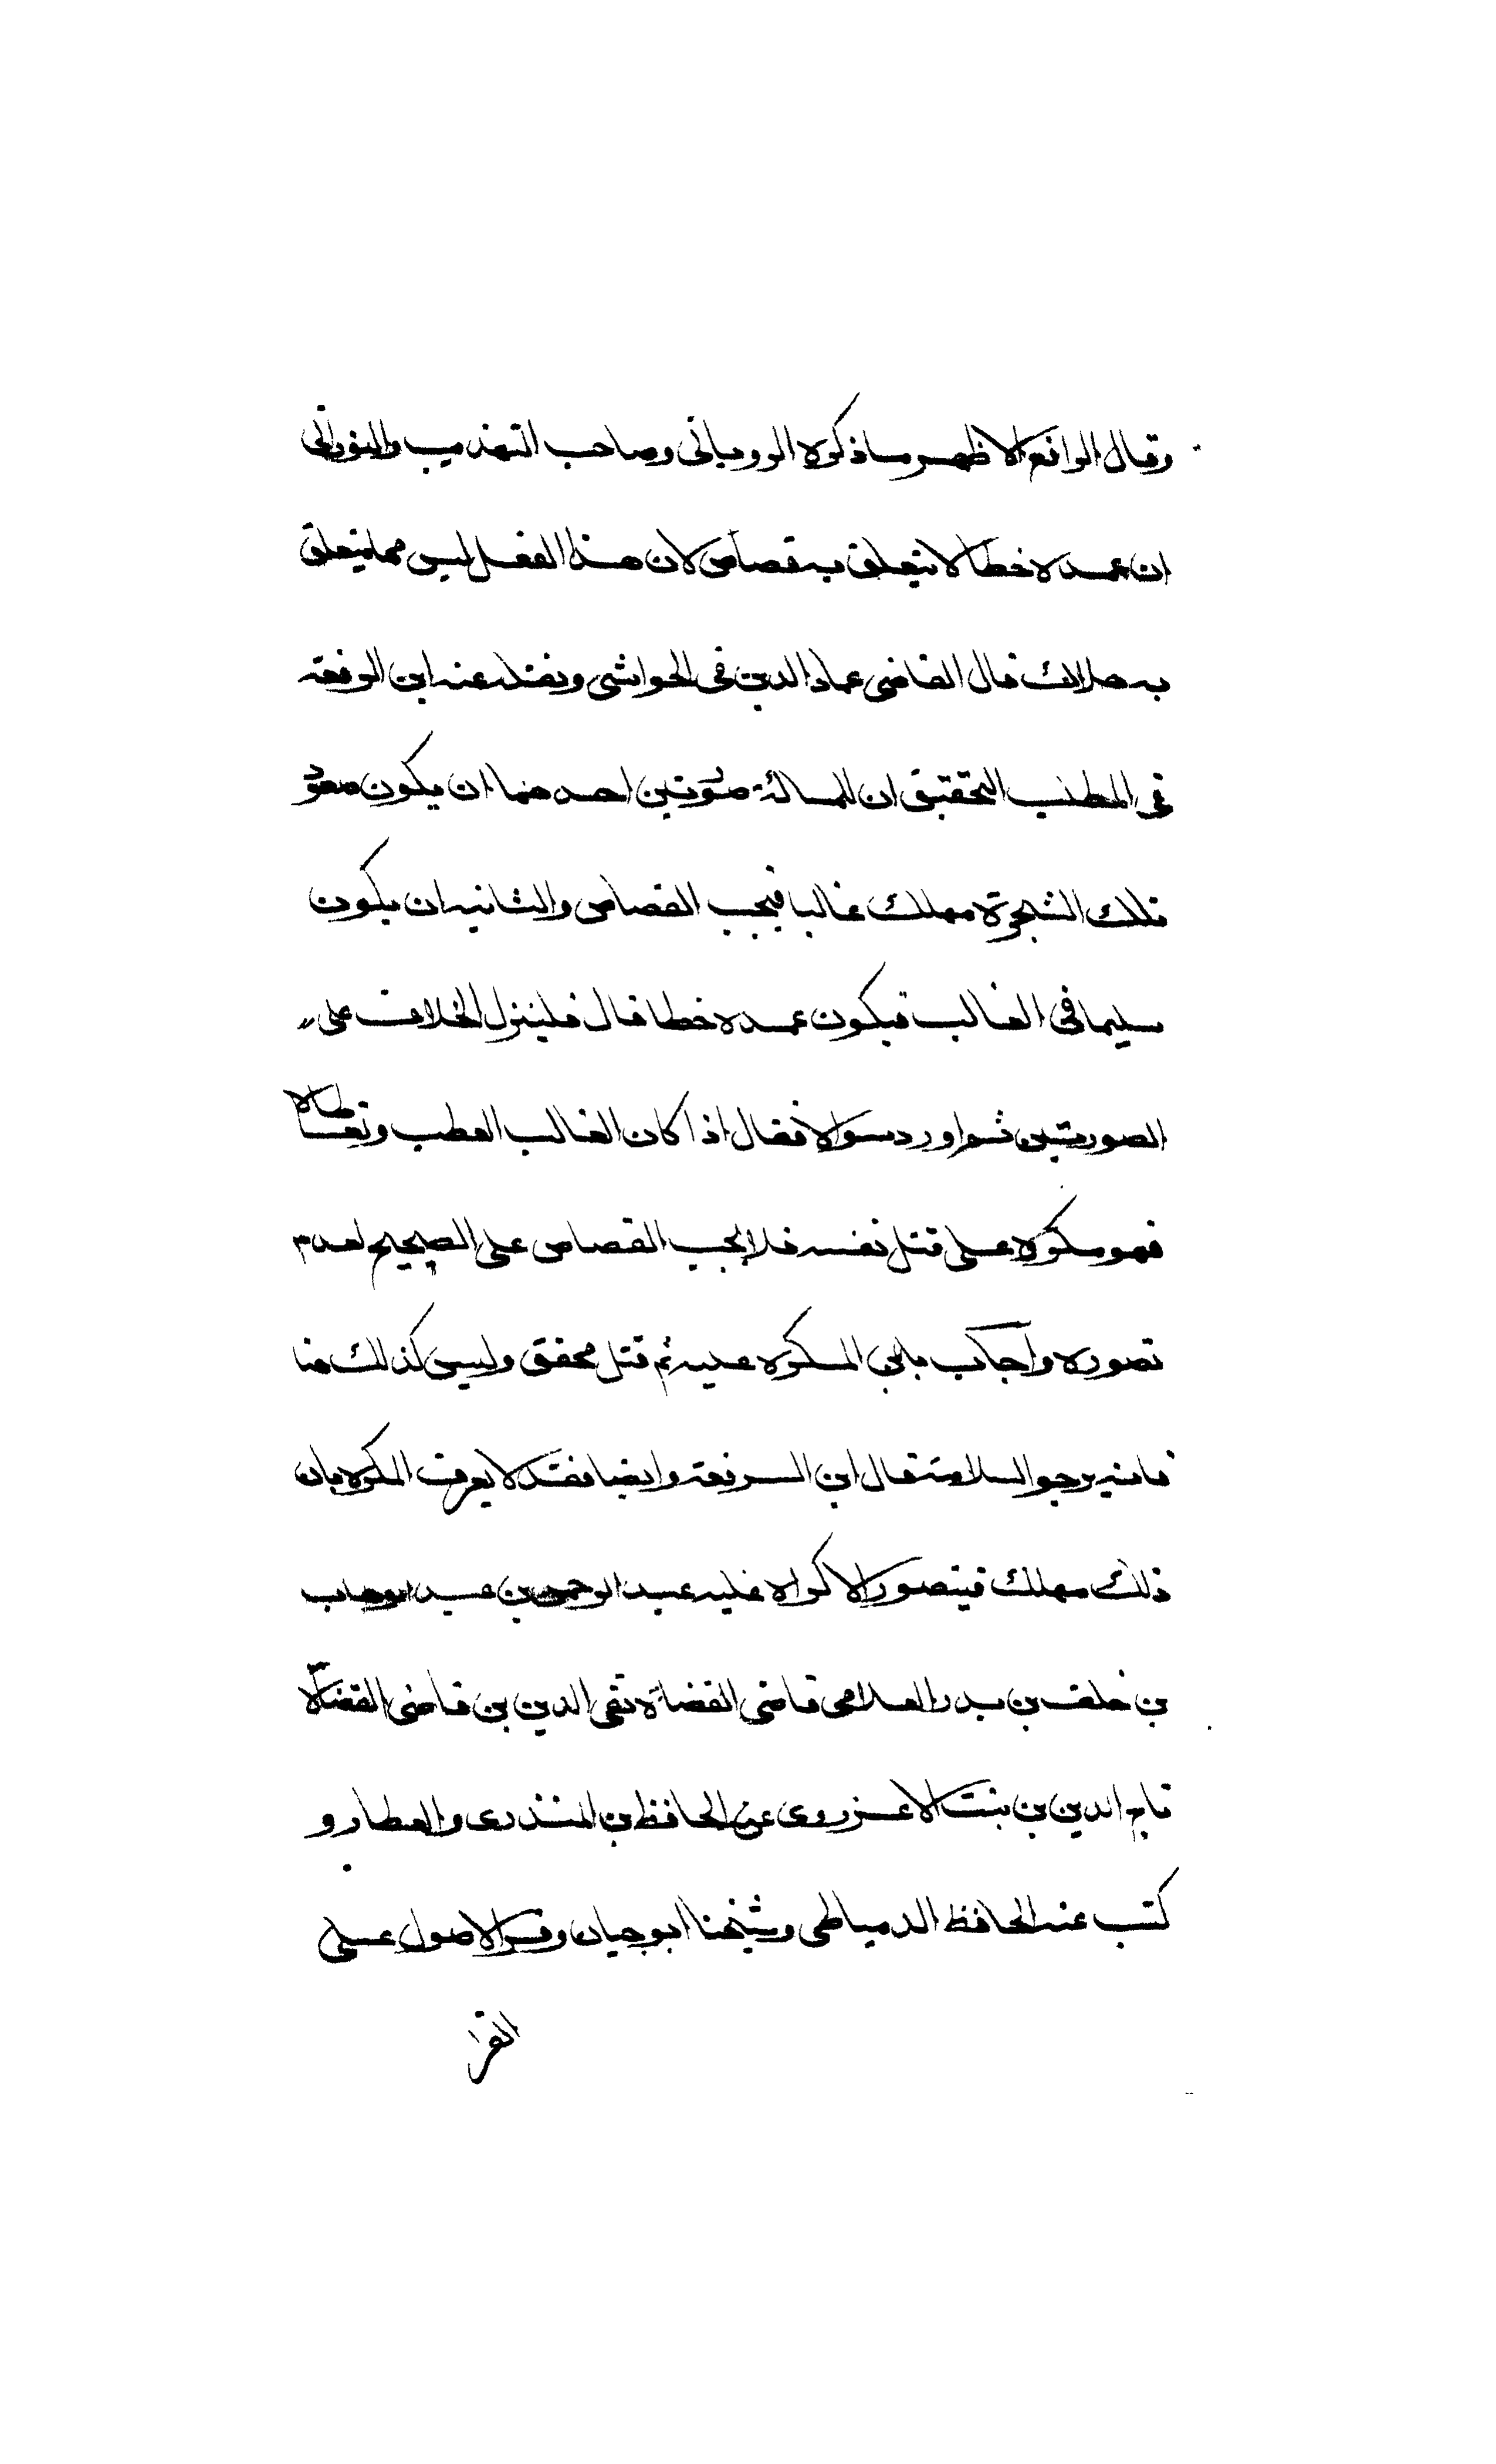 وقال الرافعي الاظهر ما ذكره الروياني وصاحب التهذيب والفوراني
ان عمده خطا لا يتعلق به قصاص لان هذا الفعل ليس مما يتعلق
به هلاك قال القاضي عماد الدين في الحواشي ونقله عنه ابن الرفعة
في المطلب التحقيق ان للمسالة صورتين احدهما ان يكون صعود
تلك الشجرة مهلك غالبا فيجب القصاص والثانيه ان يكون
سليما في الغالب فيكون عمده خطا قال فلينزل الخلاف على
الصورتين ثم اورد سوالا فقال اذا كان الغالب العطب وتعاطاه
فهو مكره على قتل نفسه فلا يجب القصاص على الصحيح لعدم
تصوره واجاب بان المكره عليه ثم قتل محقق وليس كذلك هنا
فانه يرجو السلامة قال ابن الرفعة وايضا فقد لا يعرف المكره بان
ذلك مهلك فيتصور الاكراه عليه عبد الرحمن بن عبد الوهاب
بن خلف بن بدر العلامي قاضي القضاة تقي الدين بن قاضي القضاة
تاج الدين بن بنت الاعز روى عن الحافظ بن المنذرى والعطار و
كتب عنه الحافظ الدمياطي وشيخنا ابو حيان وقرا الاصول على
القرا